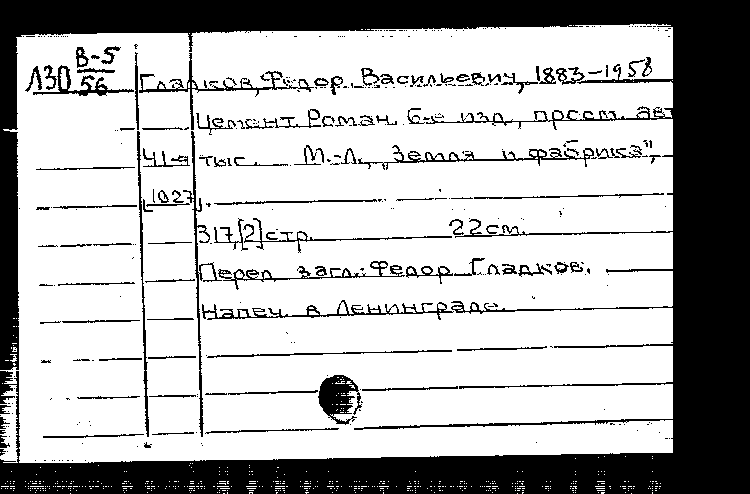 Л30 В-5/56
Гладков, Федор Васильевич, 1883-1958
Цемент. Роман. 6-е изд., просм. авт
41-я тыс. М.-Л., "Земля и фабрика",
[1927].
317,[2]стр. 22см.
Перед загл.: Федор Гладков.
Напеч. в Ленинграде.